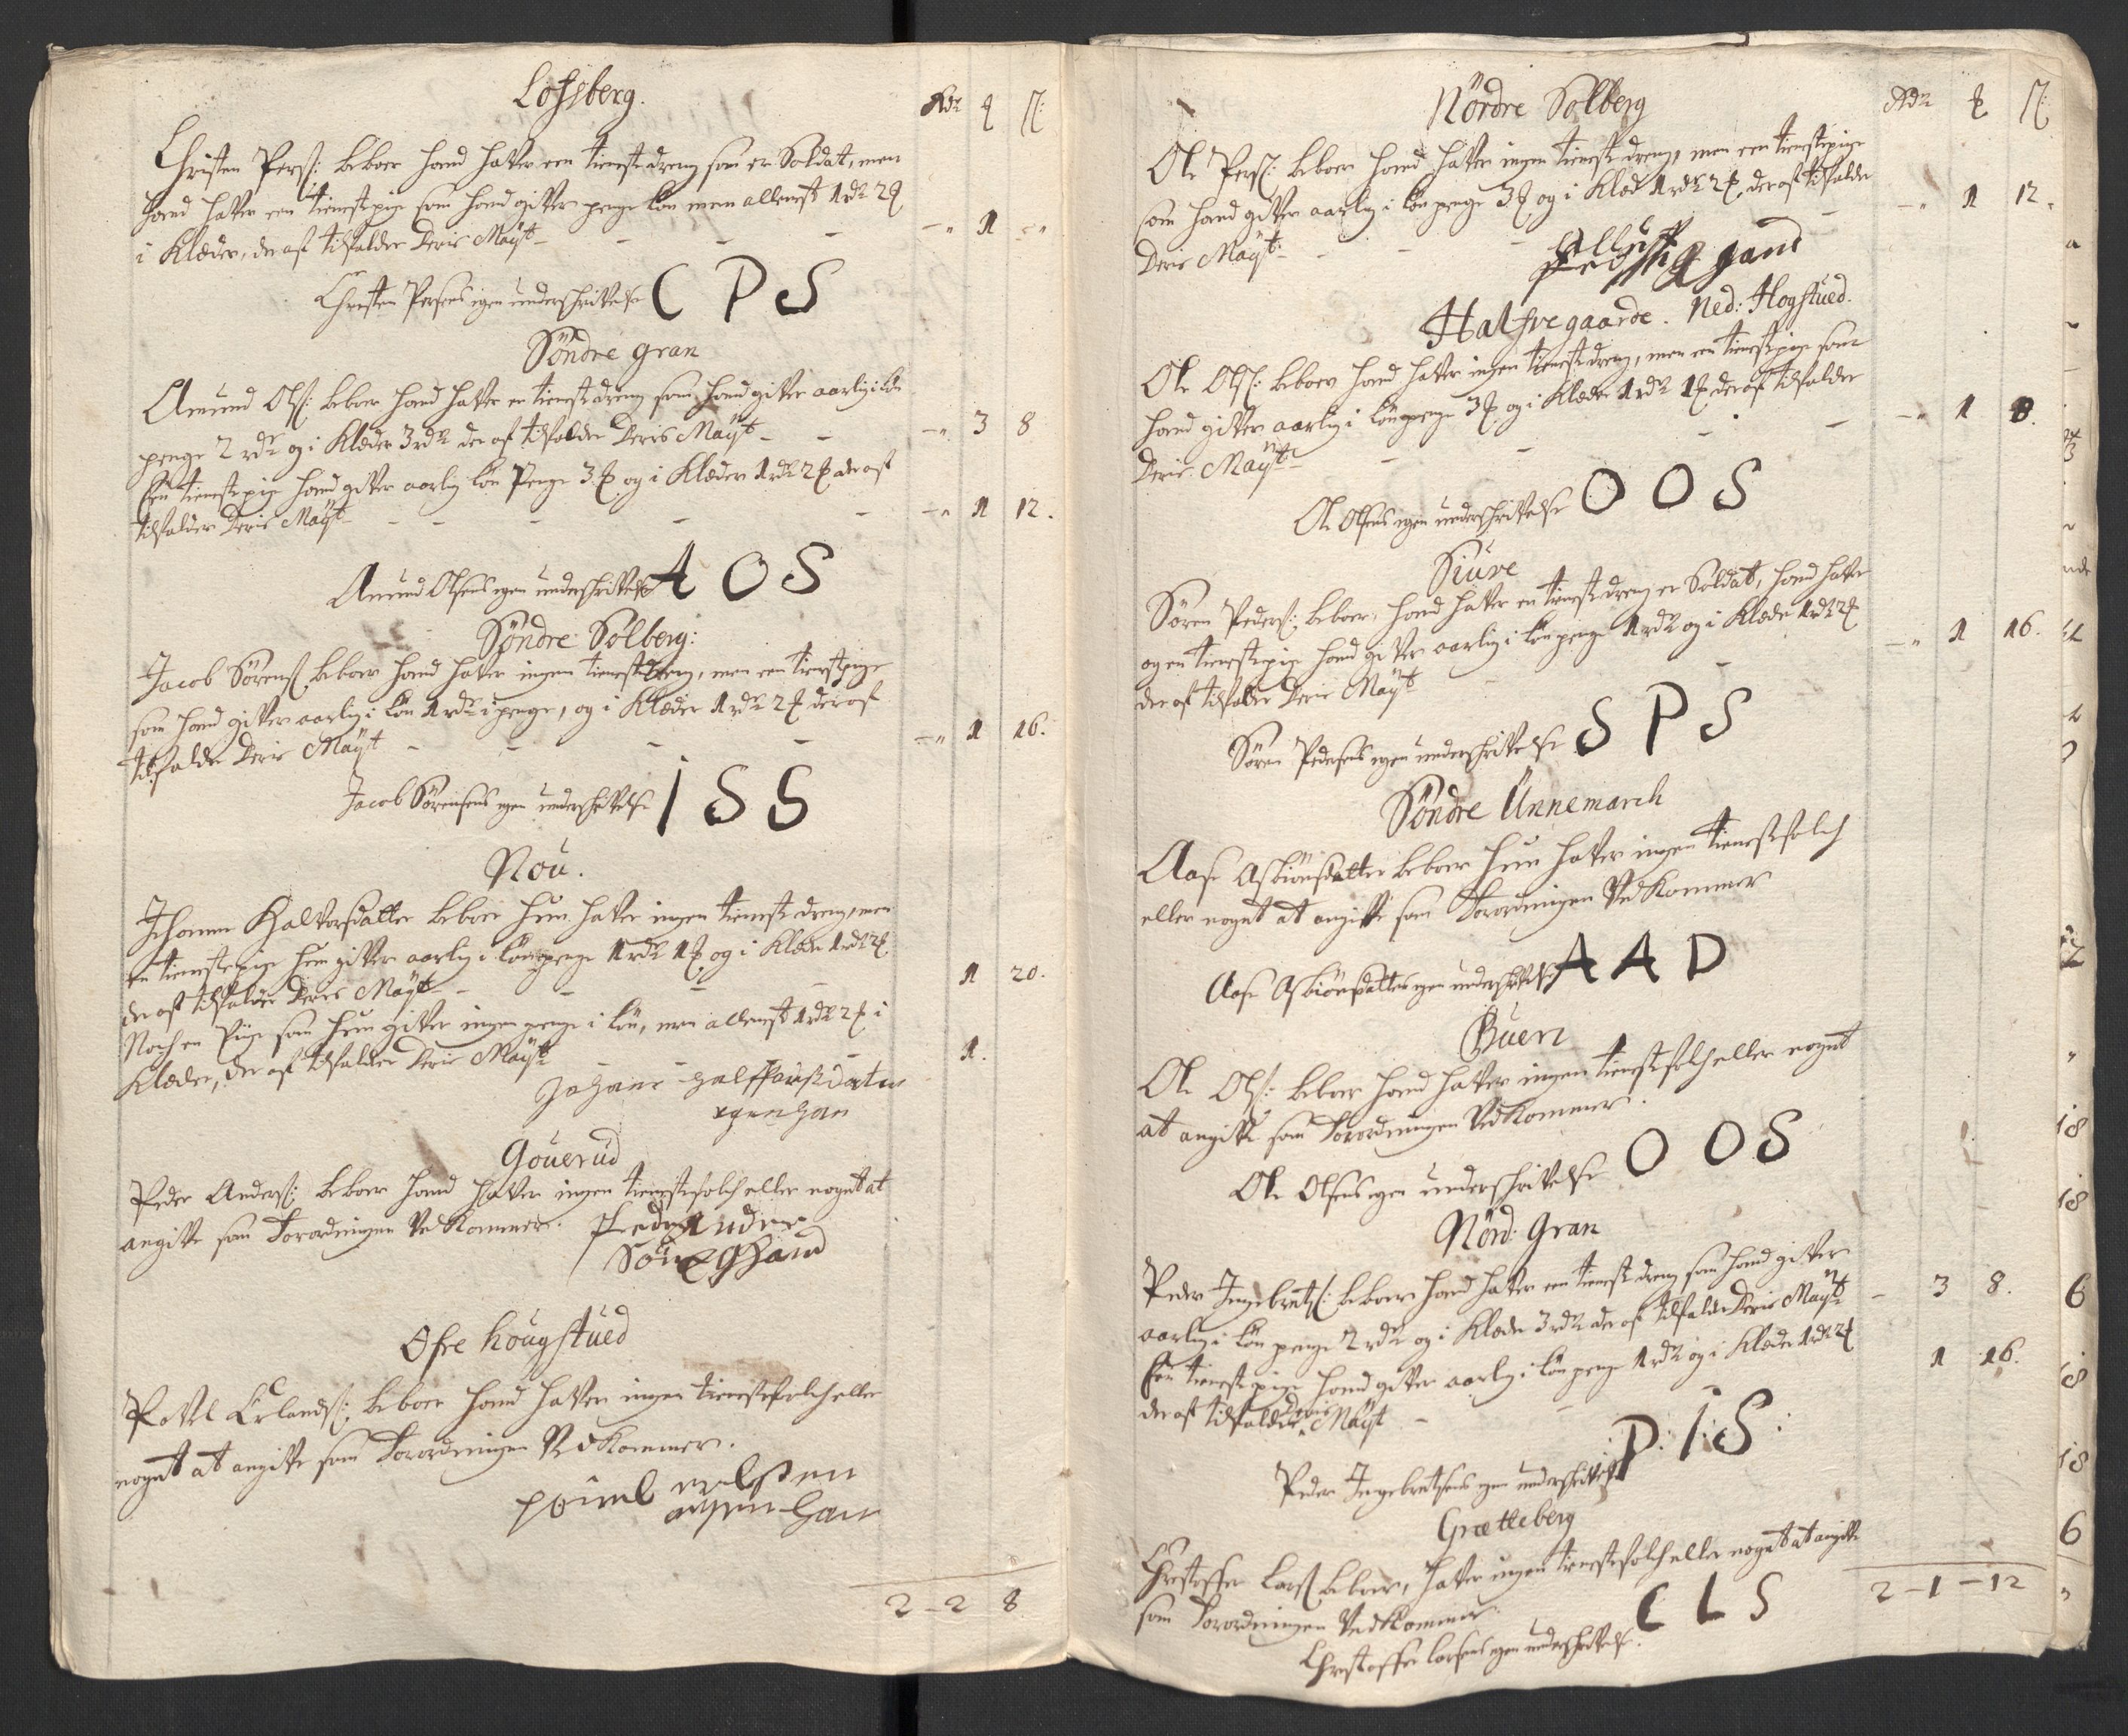 Lofsberg.
Rdr ꝣ ß:
Christen Pers: beboer hand haver een tieneste dreng som er Soldat, men
hand haver een tieneste pige som hand giver penge løn men allenest 1 rdr 2 ꝣ
i Klæder, der af tilfalder Deris Mayt - - - - " 1 "
Christen Persens egen underschrivelse C P S
Söndre gran
Amund Ols: beboer hand haver en tieneste dreng som hand giver aarlig i løn
penge 2 rdr og i Klæder 3 rdr der af tilfalder Deris Mayt - - " 3 8
Een tieneste pige hand giver aarlig løn Penge 3 ꝣ og i Klæder 1 rdr 2 ꝣ der af
tilfalder Deris Mayt - - - - - " 1 12.
Amund Olsens egen underschrivelse A O S
Søndre Solberg:
Jacob Sørens: beboer hand haver ingen tieneste dreng, men een tieneste pige
som hand giver aarlig i løn 1 rdr i penge, og i Klæder 1 rdr 2 ꝣ der af
tilfalder Deris Mayt - - - - " 1 16.
Jacob Sørensens egen underschrivelse I S S
Nou.
Johanne Halvorsdatter beboer hun haver ingen tieneste dreng, men
en tieneste pige hun giver aarlig i løn penge 1 rdr 1 ꝣ og i Klæde 1 rdr 2 ꝣ
der af tilfalder Deris Mayt - - - - 1 20.
Noch en Pige som hun giver ingen penge i løn, men allenest 1 rdr 2 ꝣ i
Klæder, der af tilfalder Deris Mayt - - - 1.
Johane Halffuarßdater
egen han
Gouerud
Peder Anders: beboer hand haver ingen tienestefolch eller noget at
angive som Forordningen Vedkommer. Peder Ander
Søn E G Hand
Ofre Hougstued
Povel Erlands: beboer hand haver ingen tienestefolch eller
noget at angive som Forordningen Vedkommer.
2 - 2 8
Nördre Solberg
Rdr ꝣ ß
Ole Pers: beboer hand haver ingen tieneste dreng, men een tieneste pige
som hand giver aarlig i løn penge 3 ꝣ og i Klæd 1 rdr 2 ꝣ, der af tilfalder
Deris Mayt - - - " 1 12.
Halfve gaarde. Ned: Hogstued.
Ole Ols: beboer hand haver ingen tieneste dreng, men een tieneste pige som
hand giver aarlig i løn penge 3 ꝣ og i Klæder 1 rdr 1 ꝣ der af tilfalder
Deris Mayt - - - - " 1 8.
Ole Olsens egen underschrivelse O O S
Siüve
Søren Peders: beboer, hand haver en tieneste dreng er Soldat, hand haver
og en tieneste pige hand giver aarlig i løn penge 1 rdr og i Klæde 1 rdr 2 ꝣ
der af tilfalder Deris Mayt - - " 1 16.
Søren Pedersens egen underschrivelse S P S
Söndre Ünnemarch
Aase Asbiönsdatter beboer hun haver ingen tienestefolch
eller noget at angive som Forordningen Vedkommer
Aase Asbiönsdatters egen underschrivelse A A D
Buen
Ole Ols: beboer hand haver ingen tienestefolch eller noget
at angive som Forordningen Vedkommer.
Ole Olsens egen underschrivelse O O S
Nörd: Gran
Peder Ingebretß: beboer hand haver een tieneste dreng som hand giver
aarlig i løn penge 2 rdr og i Klæde 3 rdr der af tilfalder Deris Mayt - 3 8.
Een tieneste pige hand giver aarlig i løn penge 1 rdr og i Klæde 1 rdr 2 ꝣ
der af tilfalder Deris Mayt - - 1 16.
Peder Ingebretsens egen underschrivelse P: I: S:
Grætteberg
Christoffer Larß beboer, haver ingen tienestefolch eller noget at angive
som Forordningen Vedkommer.
Christoffer Larsens egen underschrivelse. C L S
2 - 1 - 12